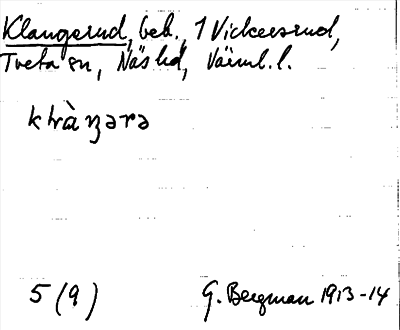 Klangerud, beb., 1 Vickersrud,
Tveta sn, Näs hd, Värml. l.
5 (9)
G. Bergman 1913-14